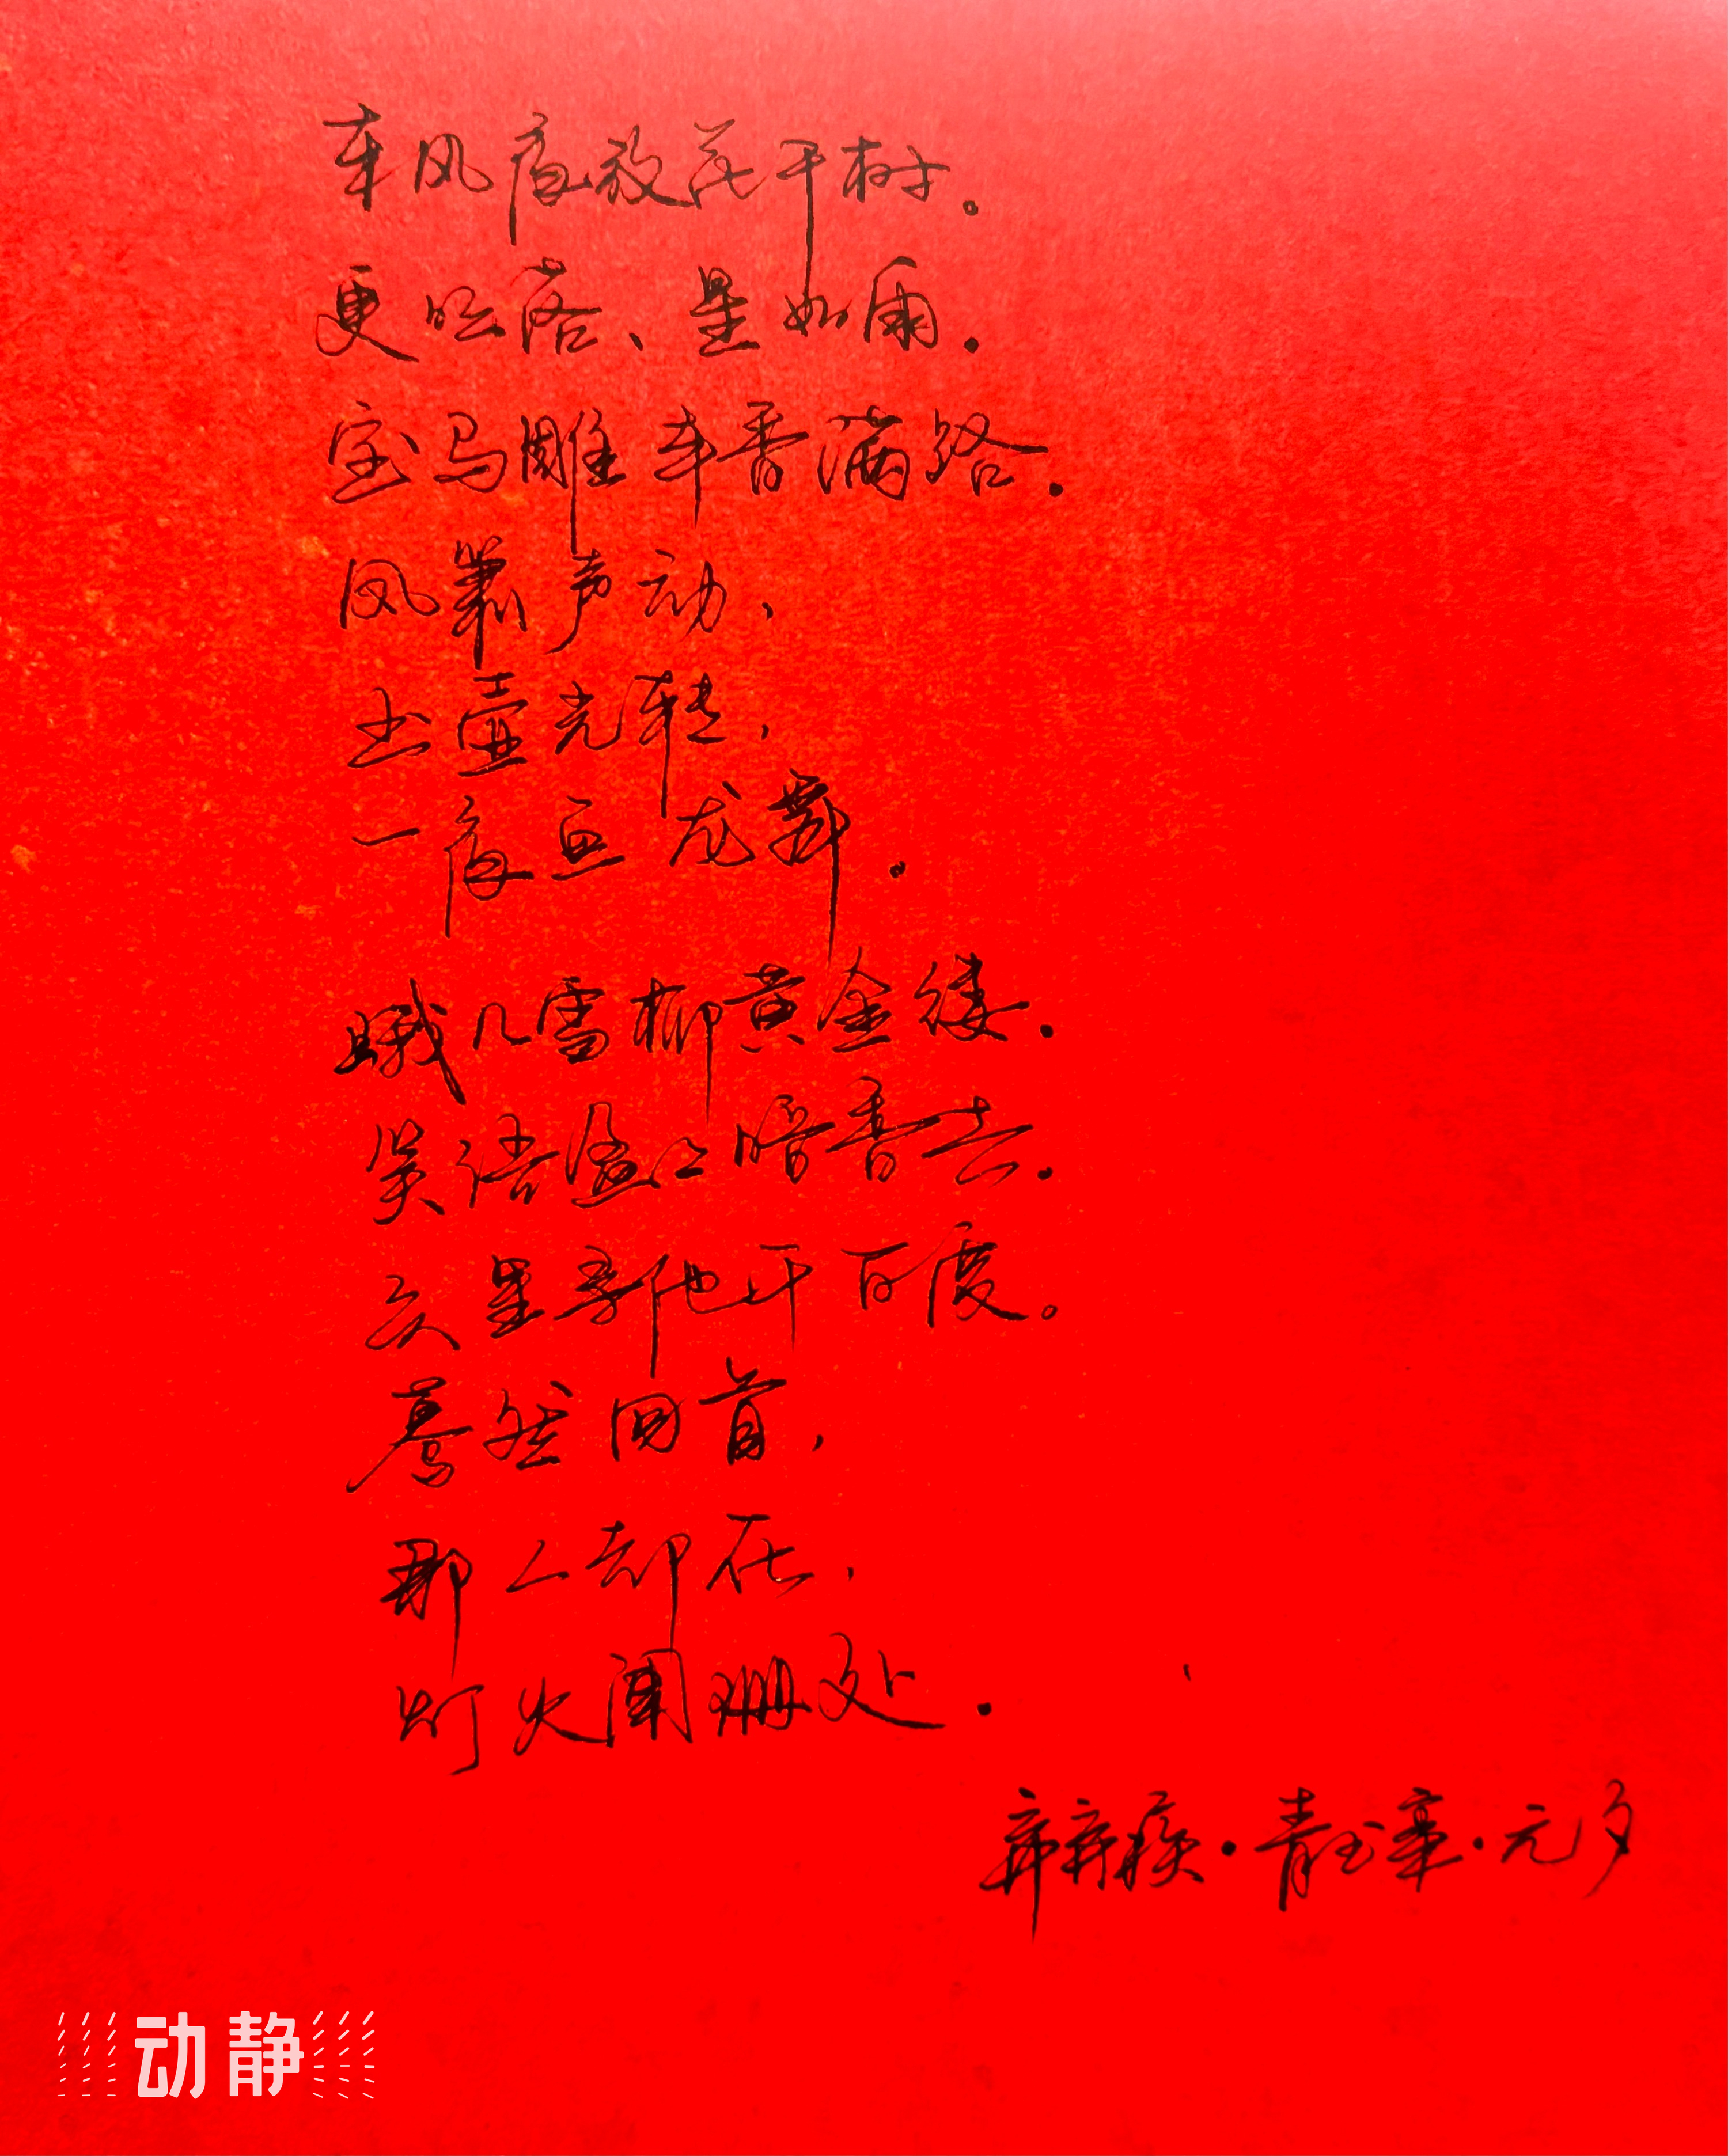 东风夜放花千树。
更吹落、星如雨。
宝马雕车香满路。
凤箫声动，
玉壶光转，
一夜鱼龙舞。
蛾儿雪柳黄金缕。
笑语盈盈暗香去。
众里寻他千百度。
蓦然回首，
那人却在，
灯火阑珊处。
辛弃疾·青玉案·元夕
动静